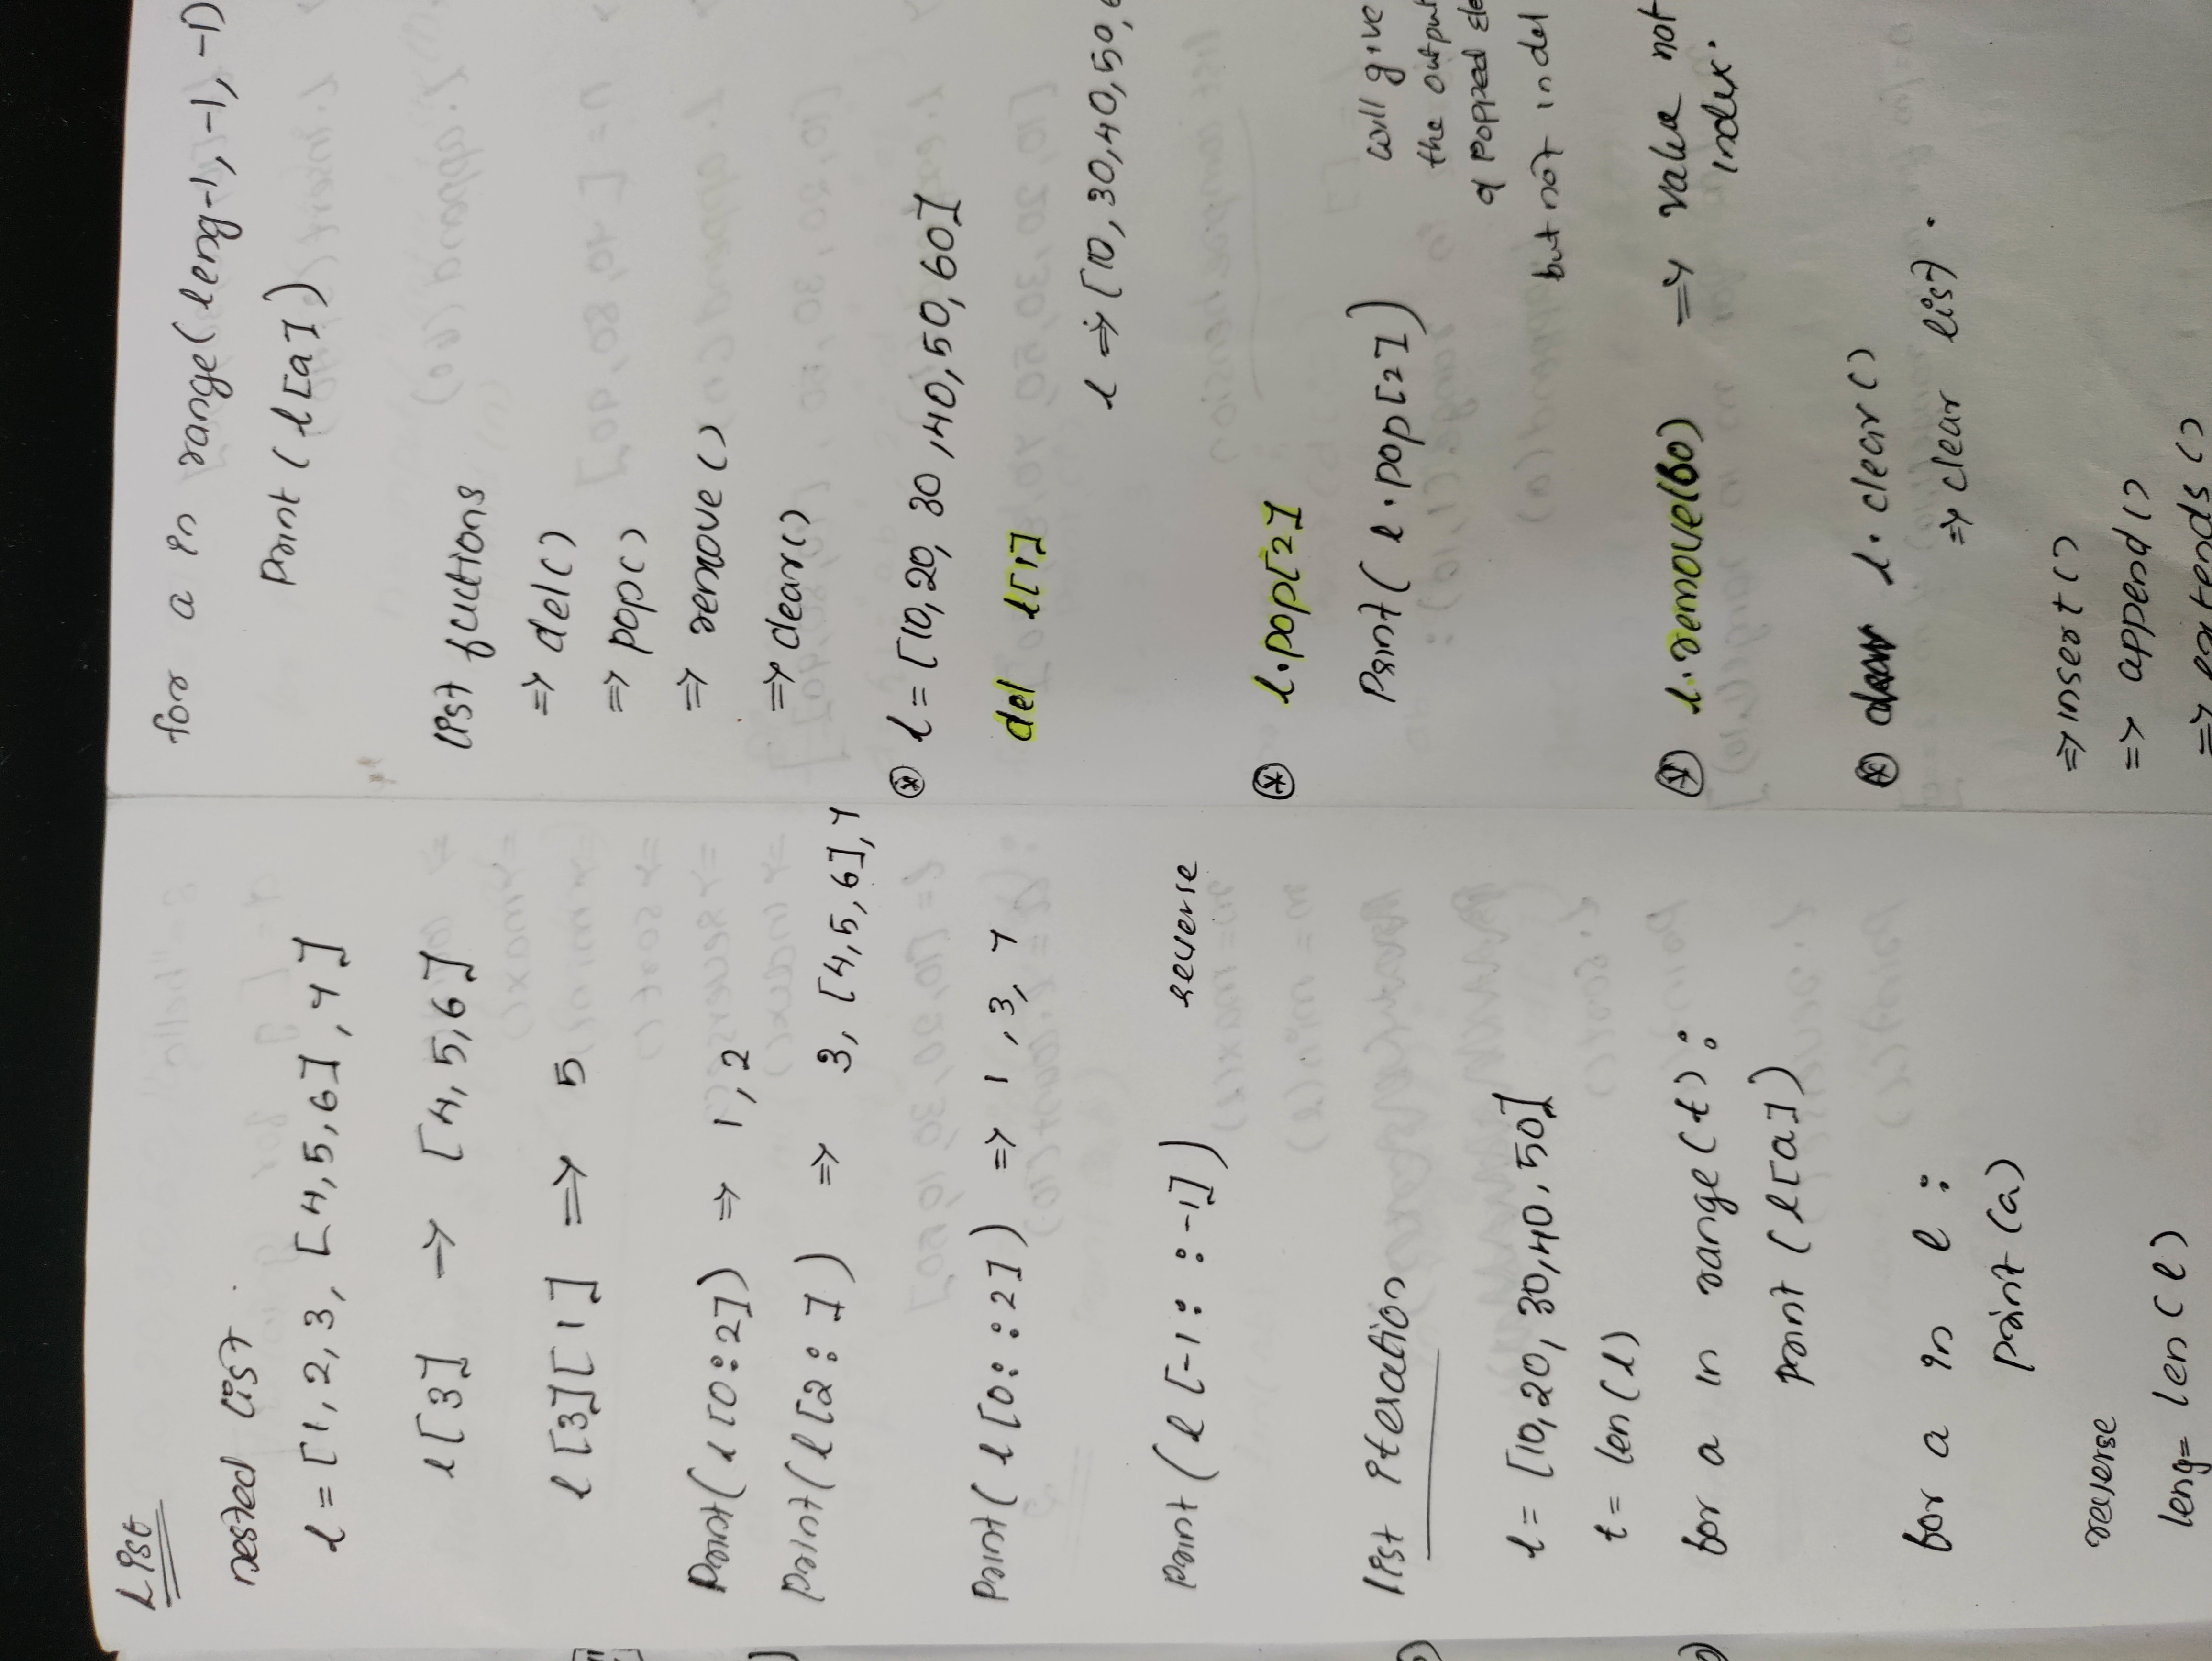 List
nested list
l = [1, 2, 3, [4, 5, 6], 7]
l[3] → [4, 5, 6]
l[3][1] ⇒ 5
Print(l[0:2]) ⇒ 1, 2
Print(l[2:]) ⇒ 3, [4, 5, 6], 7
Print(l[0::2]) ⇒ 1, 3, 7
Print(l[-1::-1]) reverse
list iteration
l = [10, 20, 30, 40, 50]
t = len(l)
for a in range(t):
print(l[a])
for a in l:
print(a)
reverse
leng= len(l)
for a in range(leng-1, -1, -1)
Print(l[a])
list fuctions
⇒ del()
⇒ pop()
⇒ remove()
⇒ clear()
* l = [10, 20, 30, 40, 50, 60]
del l[1]
l ⇒ [10, 30, 40, 50,
* l.pop[2]
Print(l.pop[2]) will give
the output
of popped ele
but not in del
* l.remove(60) ⇒ value not
index.
* l.clear()
⇒ clear list.
⇒ insert()
⇒ append()
⇒ extends()